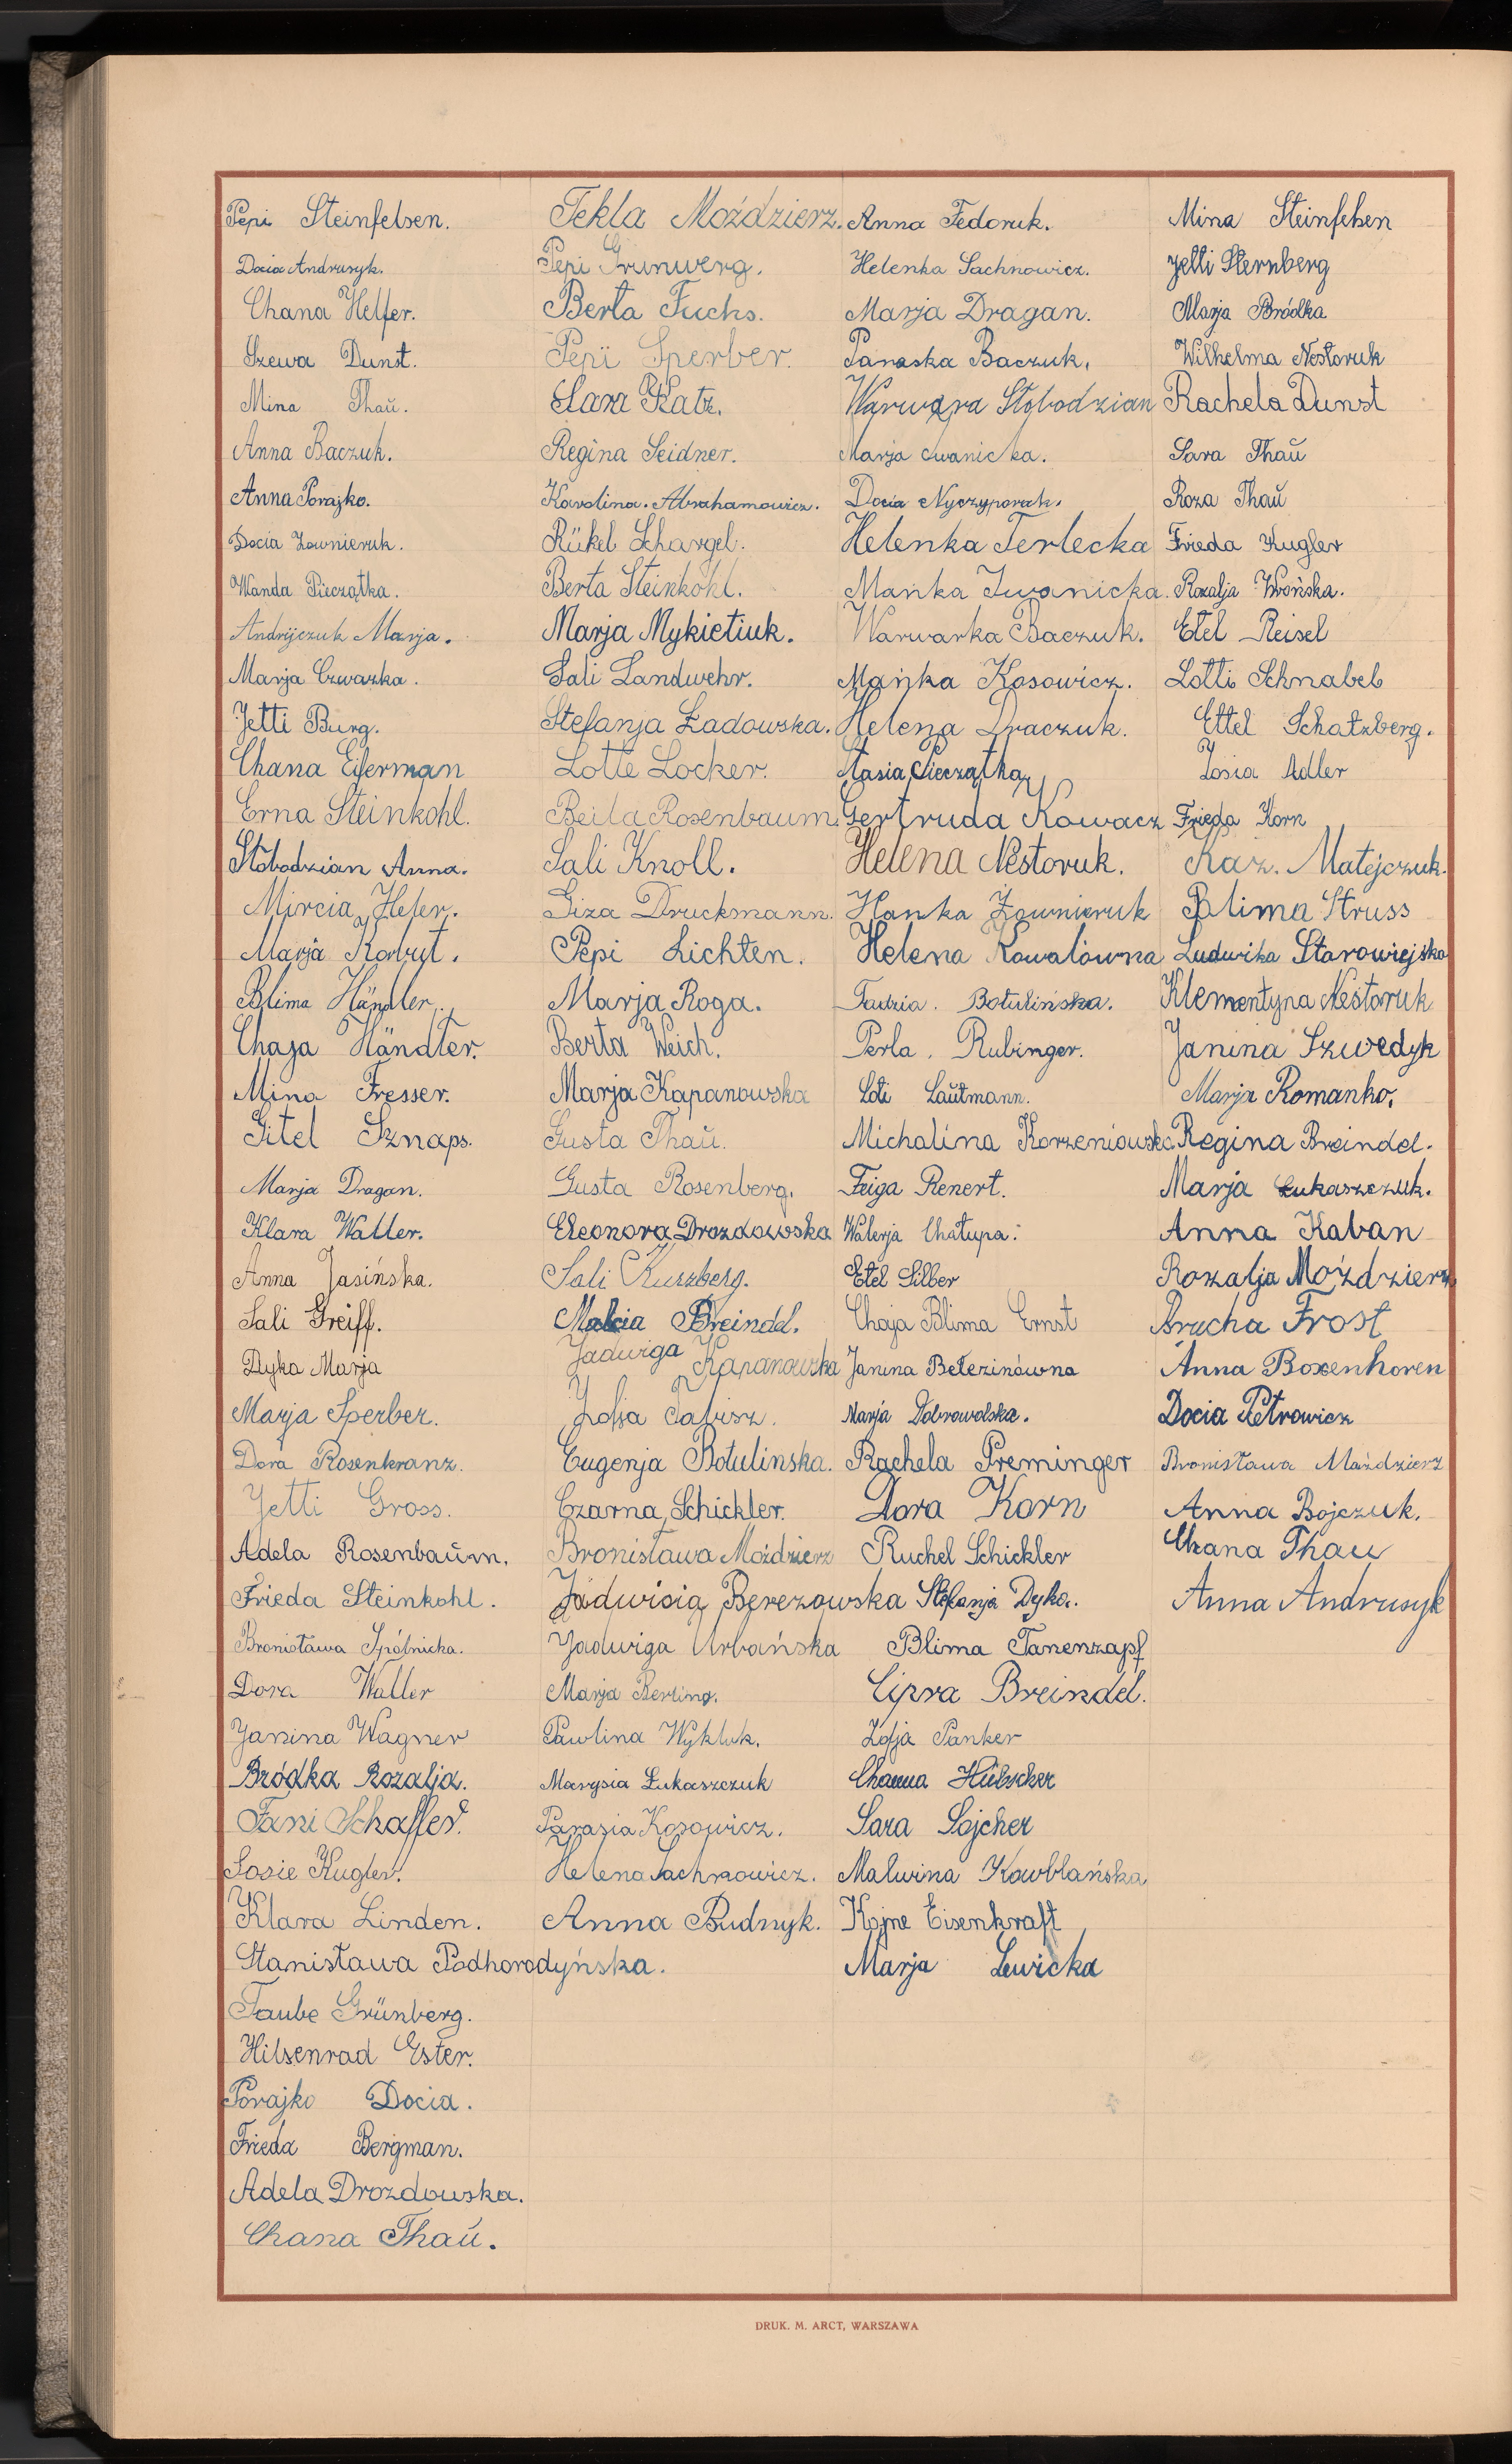 Pepi Steinfelsen.
Docia Andrusyk.
Chana Helfer.
Szewa Dunst.
Mina Thaŭ.
Anna Baczuk.
Anna Porajko.
Docia Żownieruk.
Wanda Pieczątka.
Andrijczuk Marja.
Marja Czwarka.
Jetti Burg.
Chana Eiferman
Erna Steinkohl.
Słobodzian Anna.
Mircia Hefer.
Marja Korbut.
Blima Händler.
Chaja Händler.
Mina Fresser.
Gitel Sznaps.
Marja Dragan.
Klara Waller.
Anna Jasińska.
Sali Greiff.
Dyka Marja
Marja Sperber.
Dora Rosenkranz.
Jetti Gross.
Adela Rosenbaŭm.
Frieda Steinkohl.
Bronisława Spólnicka.
Dora Waller
Janina Wagner
Bródka Rozalja.
Fani Schaffer.
Sosie Kugler.
Klara Linden.
Stanisława Podhorodyńska.
Taube Grünberg.
Hilsenrad Ester.
Porajko Docia.
Frieda Bergman.
Adela Drozdowska.
Chana Thaŭ.
Tekla Moździerz.
Pepi Grunwerg.
Berta Fuchs.
Pepi Sperber.
Sara Katz.
Regina Seidner.
Karolina. Abrahamowicz.
Rükel Schargel.
Berta Steinkohl.
Marja Mykietiuk.
Sali Landwehr.
Stefanja Ładowska.
Lotte Locker.
Beila Rosenbaum.
Sali Knoll.
Giza Druckmann.
Pepi Lichten.
Marja Roga.
Berta Weich.
Marja Kapanowska
Gusta Thaŭ.
Gusta Rosenberg.
Eleonora Drozdowska
Sali Kurzberg.
Malcia Breindel.
Jadwiga Kapanowska
Zofja Tabisz.
Eugenja Botulinska.
Czarna Schickler.
Bronisława Moździerz
Jadwisia Berezowska
Jadwiga Urbańska
Marja Berling.
Pawlina Wykluk.
Marysia Łukaszczuk
Parasia Kosowicz.
Helena Sachnowicz.
Anna Budnyk.
Anna Fedoruk.
Helenka Sachnowicz.
Marja Dragan.
Paraska Baczuk.
Warwara Słobodzian
Marja Iwanicka.
Docia Nyczyporuk.
Helenka Terlecka
Mańka Iwanicka.
Warwarka Baczuk.
Mańka Kosowicz.
Helena Draczuk.
Stasia Pieczątka
Gertruda Kowacz
Helena Nestoruk.
Hanka Żownieruk
Helena Kowalówna
Tadzia. Botulińska.
Perla. Rubinger.
Loti Laŭtmann.
Michalina Korzeniowska
Feiga Renert.
Walerja Chałupa.
Etel Silber
Chaja Blima Ernst
Janina Bełezinówna
Marja Dobrowolska.
Rachela Preminger
Dora Korn
Ruchel Schickler
Stefanja Dyka.
Blima Tanenzapf
Cipra Breindel.
Zofja Panker
Channa Hübscher
Sara Sojcher
Malwina Kowblańska
Kojne Eisenkraft
Marja Lewicka
Mina Steinfelsen
Jetti Sternberg
Marja Bródka
Wilhelma Nestoruk
Rachela Dunst
Sara Thaŭ
Roza Thaŭ
Frieda Kugler
Rozalja Wrońska.
Etel Reisel
Lotti Schnabel
Ettel Schatzberg.
Zosia Adler
Frieda Korn
Kaz. Matejczuk.
Blima Struss
Ludwika Starowiejska
Klementyna Nestoruk
Janina Szwedyk
Marja Romanko.
Regina Breindel.
Marja Łukaszczuk.
Anna Kaban
Rozalja Moździerz
Brucha Frost
Anna Boxenhoren
Docia Petrowicz
Bronisława Moździerz
Anna Bojczuk.
Chana Thau
Anna Andrusyk
DRUK. M. ARCT, WARSZAWA